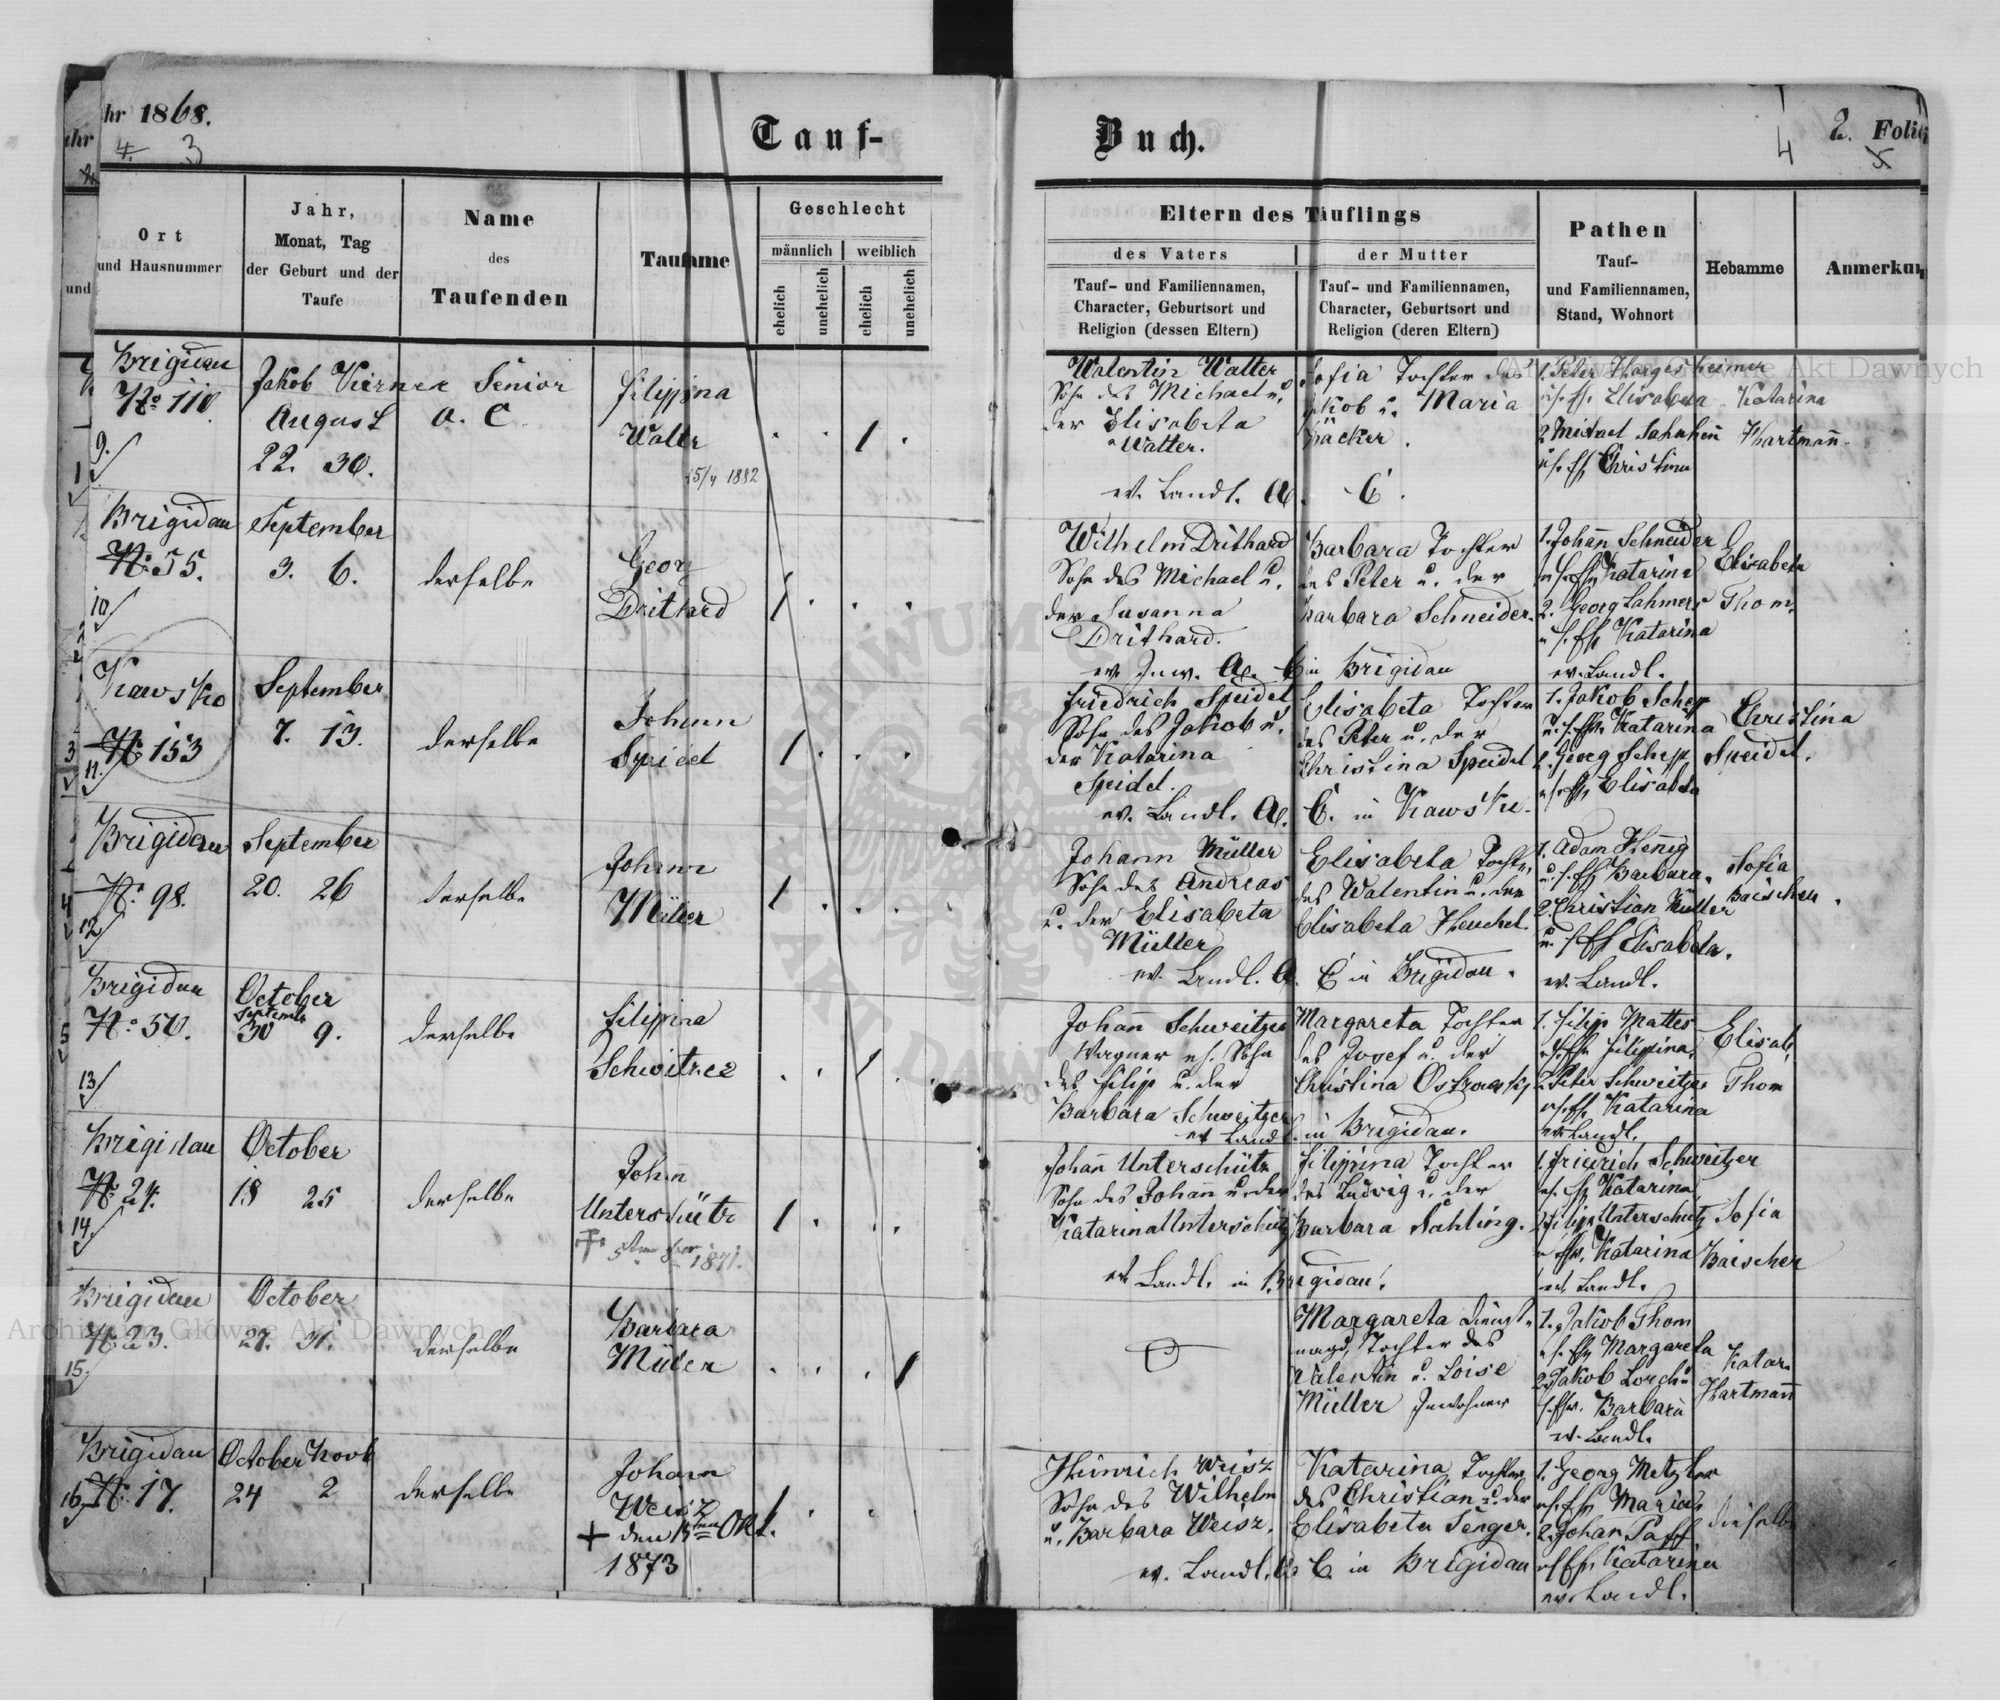 hr 1868.
4. 3
Tauf-
Buch.
4
2. Folio
5
Ort
und Hausnummer
Jahr,
Monat, Tag
der Geburt und der
Taufe
Name
des
Taufenden
Taufname
Geschlecht
männlich weiblich
ehelich unehelich ehelich unehelich
Eltern des Täuflings
des Vaters
Tauf- und Familiennamen,
Character, Geburtsort und
Religion (dessen Eltern)
der Mutter
Tauf- und Familiennamen,
Character, Geburtsort und
Religion (deren Eltern)
Pathen
Tauf-
und Familiennamen,
Stand, Wohnort
Hebamme
Anmerkun
Brigidau
No 110
9.
Jakob Senior
August a. C
22. 30.
Filippina
Walter
15/4 1882
Walentin Walter
Sohn des Michael u.
der Elisabeta
Walter.
ev. Landl. A. C.
Sofia Tochter des
Jakob u. Maria
Bäcker.
1. Peter
Elisabeta
2. Michael
Christina
Katarina
Hartmañ
Brigidau
No 55.
10
September
3. 6.
derselbe
Georg
Drithard
Wilhelm Drithard
Sohn des Michael u.
der Susanna
Drithard.
ev. Inw. A. C in Brigidau
Barbara Tochter
des Peter u. der
Barbara Schneider.
1. Johañ Schneider
Katarina
2. Georg Lahmers
Katarina
ev. Landl.
Elisabeta
Thom.
Kawsko
No 153
11.
September
7. 13.
derselbe
Johann
Speidel
Friedrich Speidel
Sohn des Jakob u.
der Katarina
Speidel.
ev. Landl. A. C. in Kawsko.
Elisabeta Tochter
des Peter u. der
Christina Speidel
1. Jakob Schepp
Katarina
2. Georg Schepp
Elisabeta
Christina
Speidel.
Brigidau
No 98.
12
September
20. 26
derselbe
Johann
Müller
Johann Müller
Sohn des Andreas
u. der Elisabeta
Müller
ev. Landl. A. C in Brigidau.
Elisabeta Tochter
des Walentin u. der
Elisabeta Heuchel.
1. Adam Heñig
Barbara.
2. Christian Müller
Elisabeta.
ev. Landl.
Sofia
Baischer.
Brigidau
No 50.
13
October
September
30 9.
derselbe
Filippina
Schweitzer
Johañ Schweitzer
Wagner eh. Sohn
des Filip u. der
Barbara Schweitzer
ev Landl. in Brigidau.
Margareta Tochter
des Josef u. der
Christina Ostrowsky
1. Filip Mattes
Filippina,
2. Peter Schweitzer
Katarina
ev. Landl.
Elisab.
Thom
Brigidau
No 24.
14.
October
18 25
derselbe
Johan
Unterschütz
1871.
Johañ Unterschütz
Sohn des Johañ u. der
Katarina Unterschütz
ev Landl. in Brigidau.
Filippina Tochter
des Ludvig u. der
Barbara Sahling.
1. Friedrich Schweitzer
Katarina,
2. Filip Unterschütz
Katarina
ev. Landl.
Sofia
Baischer
Brigidau
No 23.
15.
October
27. 31.
derselbe
Barbara
Müller
Margareta Dienst-
magd, Tochter des
Valentin u. Loise
Müller Inwohner
1. Jakob Thom
Margareta
2. Jakob Lorch
Barbara
ev. Landl.
Katar.
Hartmañ
Brigidau
16. No 17.
October Novb
24 2
derselbe
Johann
Weisz
+ den 15ten Okt.
1873
Heinrich Weisz
Sohn des Wilhelm
u. Barbara Weisz.
ev. Landl. A. C. in Brigidau
Katarina Tochter
des Christian u. der
Elisabeta Senger.
1. Georg Metzler
Maria,
2. Johan Paff
Katarina
ev. Landl.
dieselbe
Archiwum Główne Akt Dawnych
Archiwum Główne Akt Dawnych
ARCHIWUM GŁÓWNE
AKT DAWNYCH